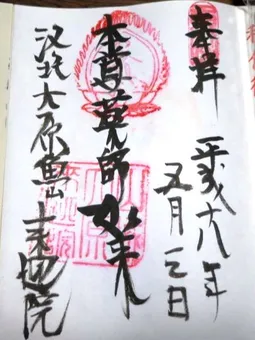 奉拝
平成十八年
五月三日
本尊薬師如来
洛北大原魚山
来迎院